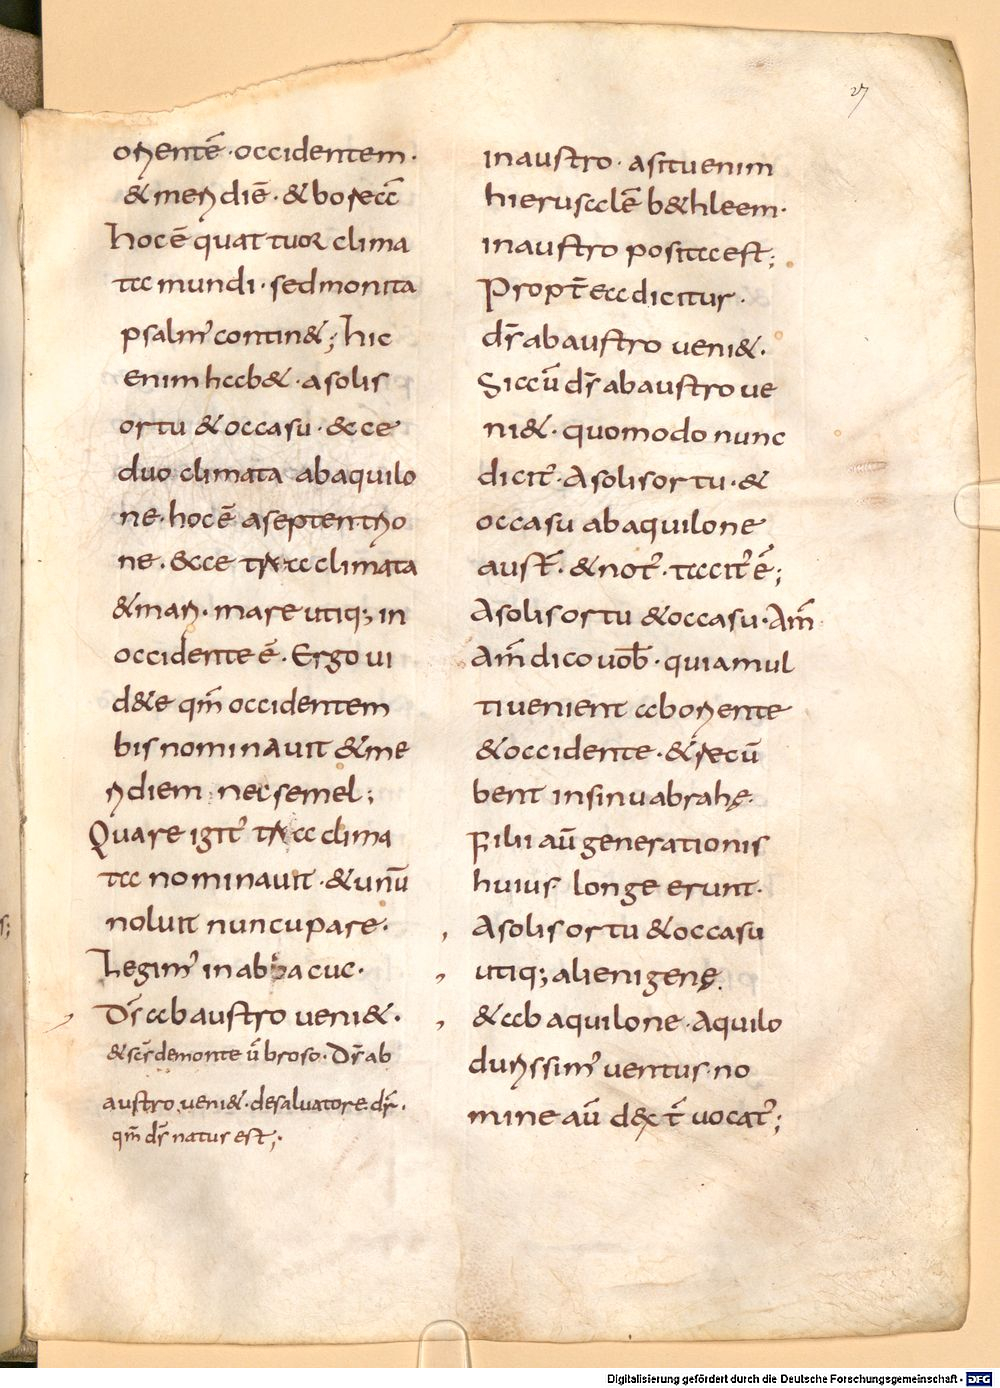 27
orientē · occidentem ·
& meridiē · & boream
hoc ē quattuor clima
ta mundi · sed monita
psalmꝰ contin&; hic
enim hab& · a solis
ortu & occasu · & ce
duo climata ab aquilo
ne · hoc ē a septentrio
ne · & ce tria climata
& mari · mare utiq; in
occidente ē · Ergo ui
d&e qm̄ occidentem
bis nominauit & me
ridiem nec semel;
Quare igitꝰ tria clima
ta nominauit · & unū
noluit nuncupare ·
Legimꝰ in abbacuc ·
Ds̄ ab austro ueni& ·
& scs̄ de monte ūbroso · Ds̄ ab
austro ueni& · de saluatore dr̄ ·
qm̄ ds̄ natus est;
in austro · a situ enim
hierusalē b&hleem ·
in austro posita est;
Propt̄ ea dicitur ·
ds̄ ab austro ueni& ·
Si aū ds̄ ab austro ue
ni& · quomodo nunc
dicit̄ · A solis ortu · &
occasu ab aquilone
aust̄ · & not̄ · tacit̄ ē;
A solis ortu & occasu · Am̄
Am̄ dico uob̄ · quia mul
ti uenient ab oriente
& occidente · & recū
bent in sinu abrahę ·
Filii aū generationis
huius longe erunt ·
A solis ortu & occasu
utiq; alienigenę ·
& ab aquilone · Aquilo
durissimꝰ uentus · no
mine aū dext̄ uocat̄;
Digitalisierung gefördert durch die Deutsche Forschungsgemeinschaft · DFG